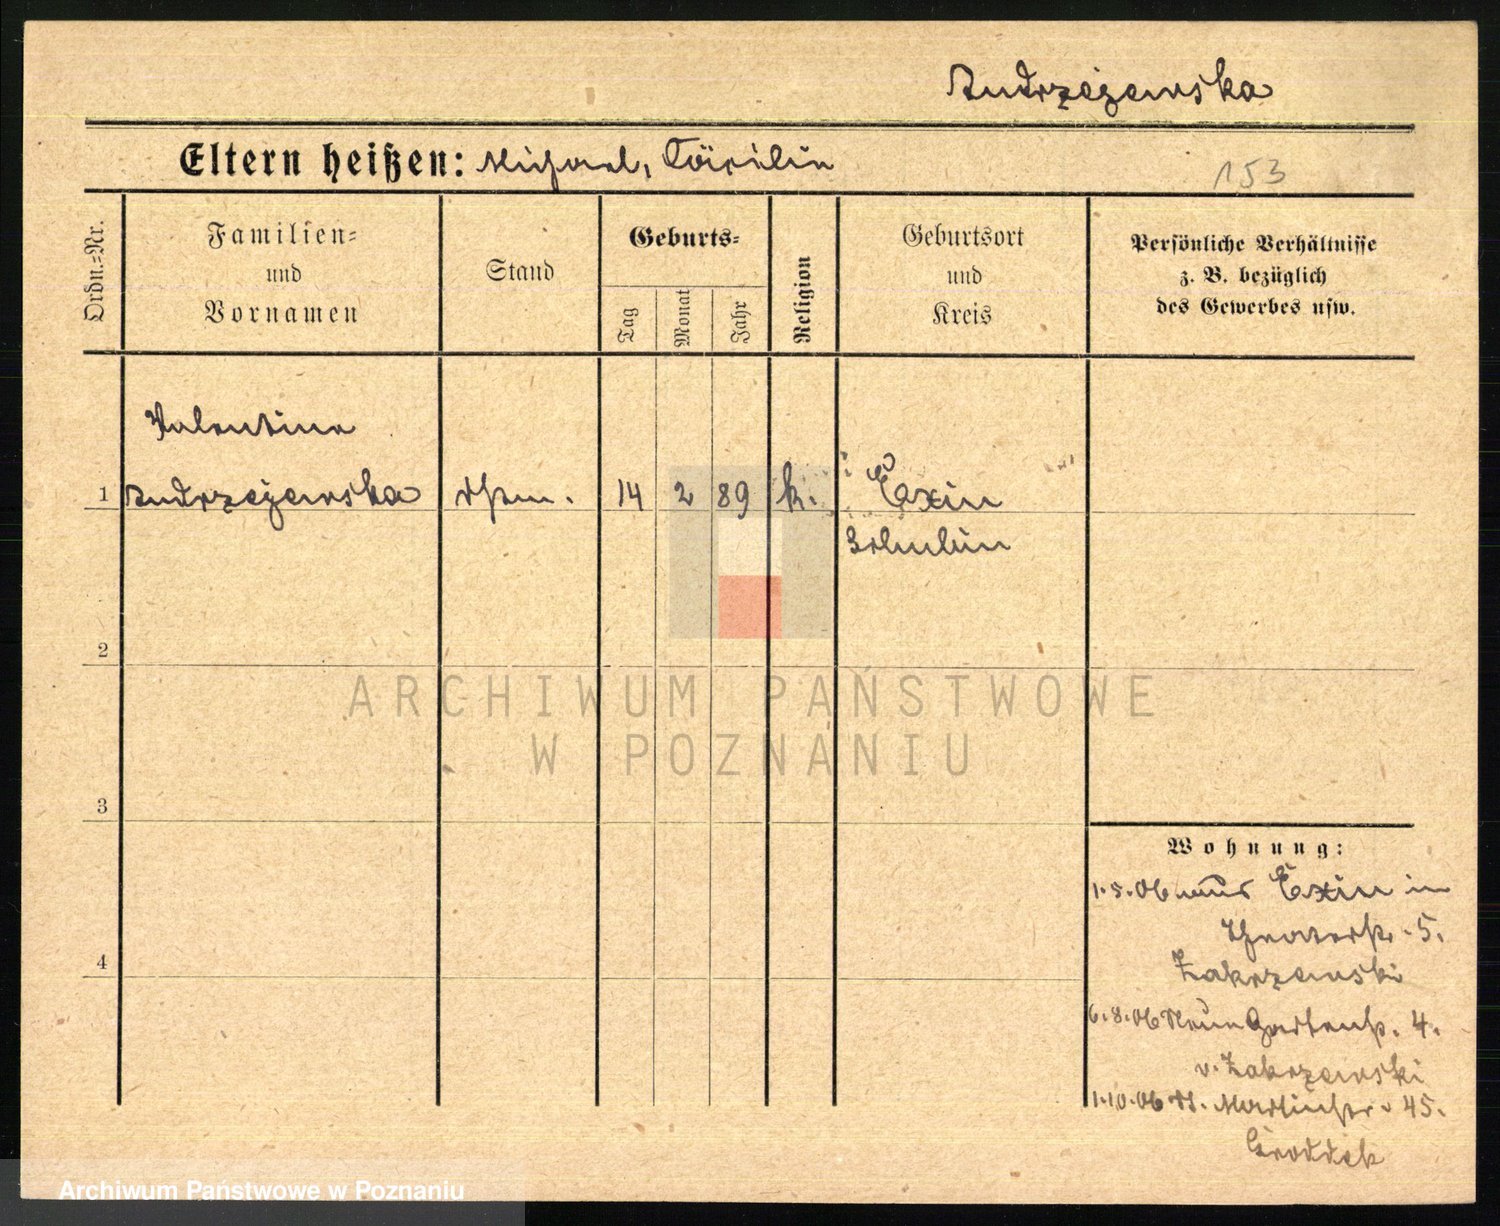 Andrzejewska
Eltern heißen: Michael, Cäcilie
153
Ordn.=Nr.
Familien=
und
Vornamen
Stand
Geburts=
Tag
Monat
Jahr
Religion
Geburtsort
und
Kreis
Persönliche Verhältnisse
z. B. bezüglich
des Gewerbes usw.
Valentine
1 Andrzejewska 14 2 89 k. Exin
Schubin
2
ARCHIWUM PAŃSTWOWE
W POZNANIU
3
Wohnung:
1.5.06 aus Exin in
Theaterstr. 5.
Zakrzewski
4
6.8.06 Neue Gartenstr. 4.
v. Zakrzewski
1.10.06 St. Martinstr. 45.
Groddek
Archiwum Państwowe w Poznaniu